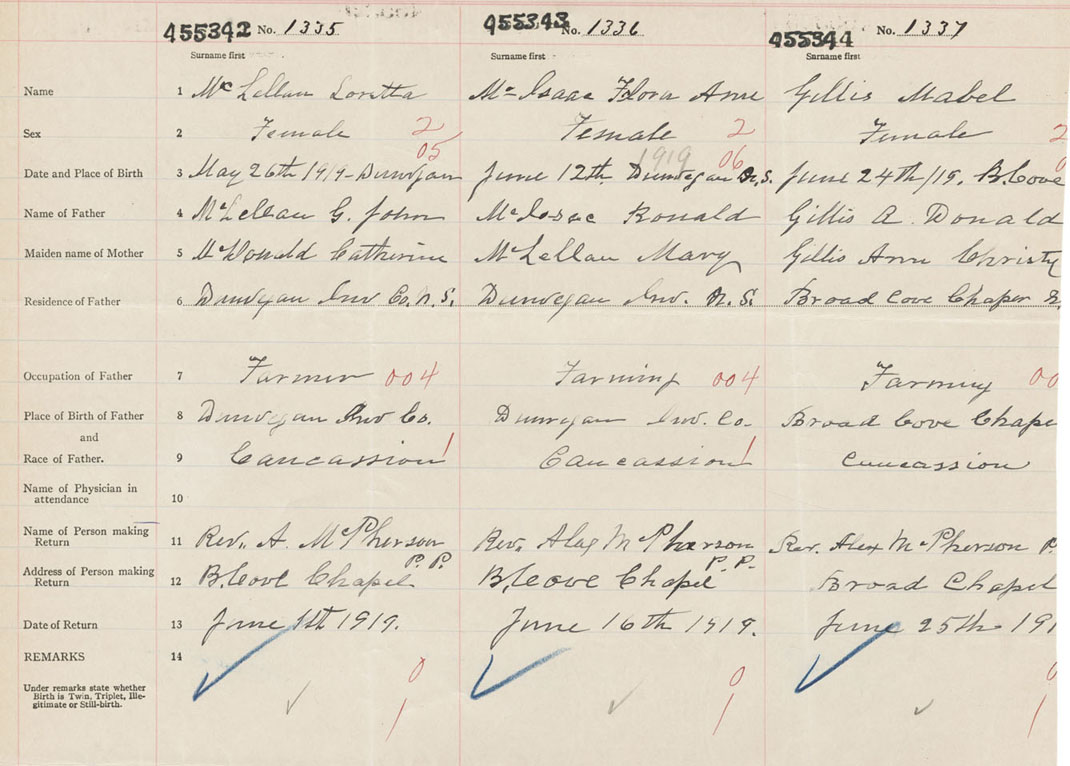 455342 No. 1335 455343 No. 1336 455344 No. 1337
Surname first Surname first Surname first
Name 1 Mc Lellan Loretta Mc Isaac Flora Anne Gillis Mabel
Sex 2 Female 2 Female 2 Female 2
05 1919 06
Date and Place of Birth 3 May 26th 1919 - Dunvegan June 12th. Dunvegan N.S. June 24th/19. B. Cove
Name of Father 4 McLellan G. John McIsaac Ronald Gillis A. Donald
Maiden name of Mother 5 McDonald Catherine McLellan Mary Gillis Ann Christy
Residence of Father 6 Dunvegan Inv Co. N.S. Dunvegan Inv. N.S. Broad Cove Chapel
Occupation of Father 7 Farmer 004 Farming 004 Farming 00
Place of Birth of Father 8 Dunvegan Inv Co. Dunvegan Inv. Co. Broad Cove Chape
and
Race of Father. 9 Caucassion 1 Caucassion 1 Caucassion
Name of Physician in
attendance 10
Name of Person making
Return 11 Rev. A. McPherson Rev. Alex McPherson Rev. Alex McPherson P.
P.P. P.P.
Address of Person making
Return 12 B. Cove Chapel B. Cove Chapel Broad Chapel
Date of Return 13 June 1st 1919. June 16th 1919. June 25th 191
REMARKS 14
0 0 0
Under remarks state whether
Birth is Twin, Triplet, Ille-
gitimate or Still-birth.
1 1 1